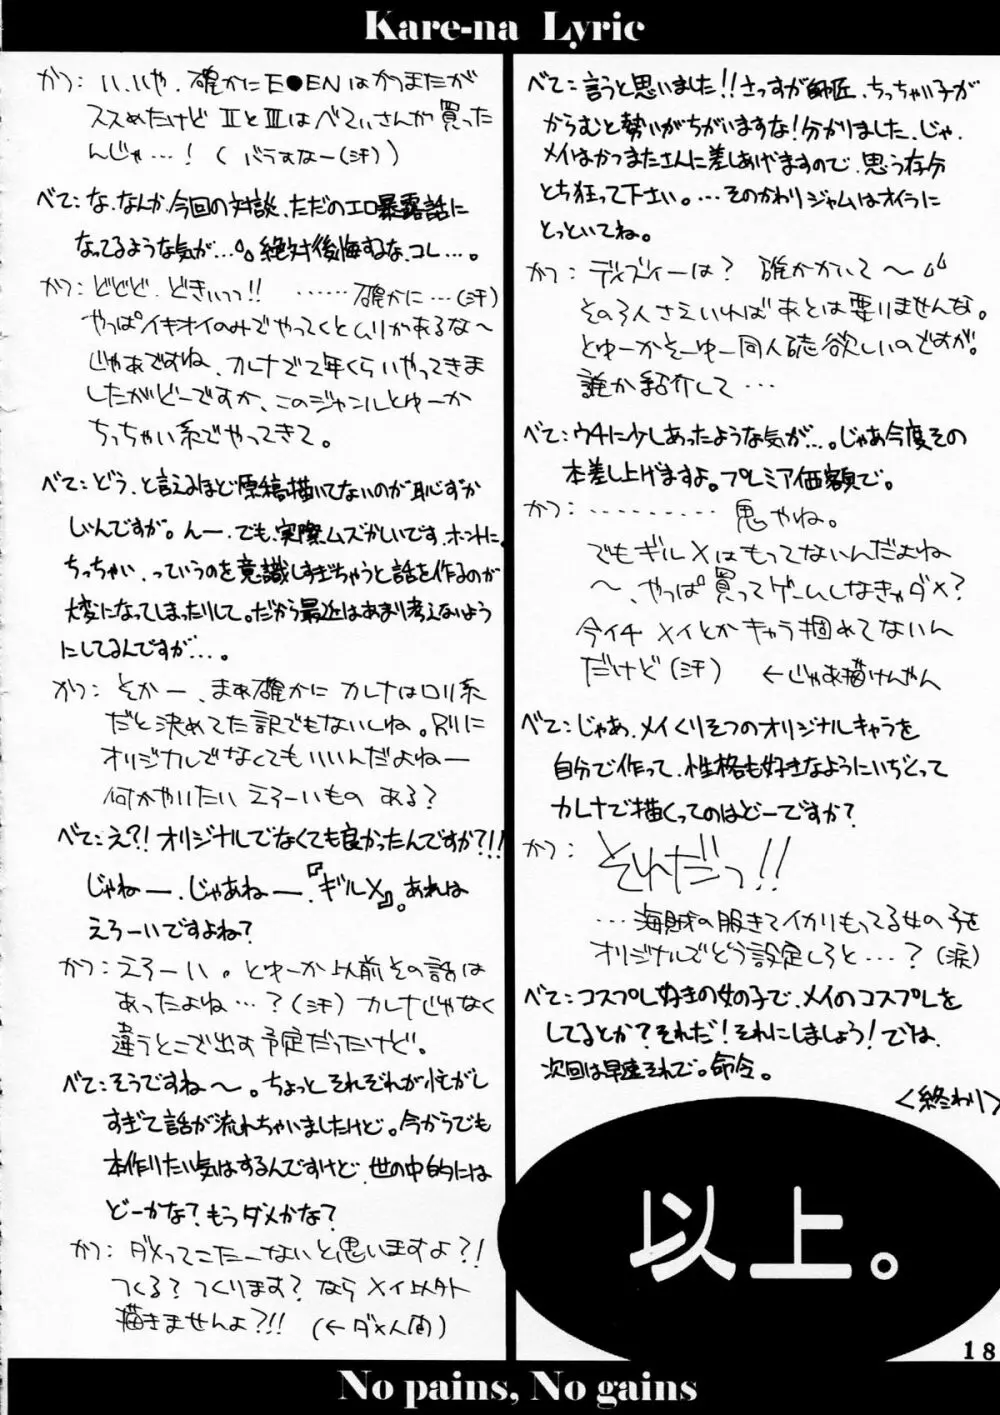 Kare-na Lyric
かつ: い、いや、確かにE●ENはかつまたが
ススめたけどⅡとⅢはべてぃさんが買った
んじゃ…! (バラすなー(汗))
べて:な、なんか、今回の対談、ただのエロ暴露話に
なってるような気が…。絶対後悔するな、コレ…。
かつ: どどど、どきぃっっ!! ……確かに…(汗)
やっぱイキオイのみでやってくとムリがあるな〜
じゃあですね、カレナで1年くらいやってきま
したがどーですか、このジャンルとゆーか
ちっちゃい系でやってきて。
べて:どう、と言えるほど原稿描いてないのが恥ずか
しいんですが。んー、でも、実際ムズかしいです、ホントに。
ちっちゃい、っていうのを意識しすぎちゃうと話を作るのが
大変になってしまったりして。だから最近はあまり考えないよう
にしてるんですが…。
かつ: そかー、まぁ確かにカレナはロリ系
だと決めてた訳でもないしね。別に
オリジナルでなくてもいいんだよねー
何かやりたい えろーいもの ある?
べて:え?!オリジナルでなくても良かったんですか?!!
じゃねー、じゃあねー、『ギルX』。あれは
えろーいですよね?
かつ:えろーい。とゆーか以前その話は
あったよね…?(汗)カレナじゃなく
違うとこで出す予定だったけど。
べて:そうですね〜。ちょっとそれぞれが忙がし
すぎて話が流れちゃいましたけど。今からでも
本作りたい気はするんですけど、世の中的には
どーかな?もうダメかな?
かつ: ダメってこたーないと思いますよ?!
つくる?つくります?ならメイ以外
描きませんよ?!! (←ダメ人間)
べて:言うと思いました!!さっすが師匠、ちっちゃい子が
からむと勢いがちがいますな!分かりました、じゃ、
メイはかつまたさんに差しあげますので、思う存分
とち狂って下さい。…そのかわりジャムはオイラに
とっといてね。
かつ: ディズィーは? 確かかいて〜
その3人さえいればあとは要りませんな。
とゆーかそーゆー同人誌欲しいのですが。
誰か紹介して…
べて:ウチに少しあったような気が…。じゃあ今度その
本差し上げますよ。プレミア価額で。
かつ: ……… 鬼やね。
でもギルXはもってないんだよね
〜、やっぱ買ってゲームしなきゃダメ?
今イチ メイとかキャラ掴めてないん
だけど(汗) ←じゃあ描けんやん
べて:じゃあ、メイくりそつのオリジナルキャラを
自分で作って、性格も好きなようにいぢくって
カレナで描くってのはどーですか?
かつ: それだっ!!
…海賊の服きてイカリもってる女の子を
オリジナルでどう設定しろと…?(涙)
べて:コスプレ好きの女の子で、メイのコスプレを
してるとか?それだ!それにしましょう!では、
次回は早速それで。命令。
<終わり>
以上。
18
No pains, No gains